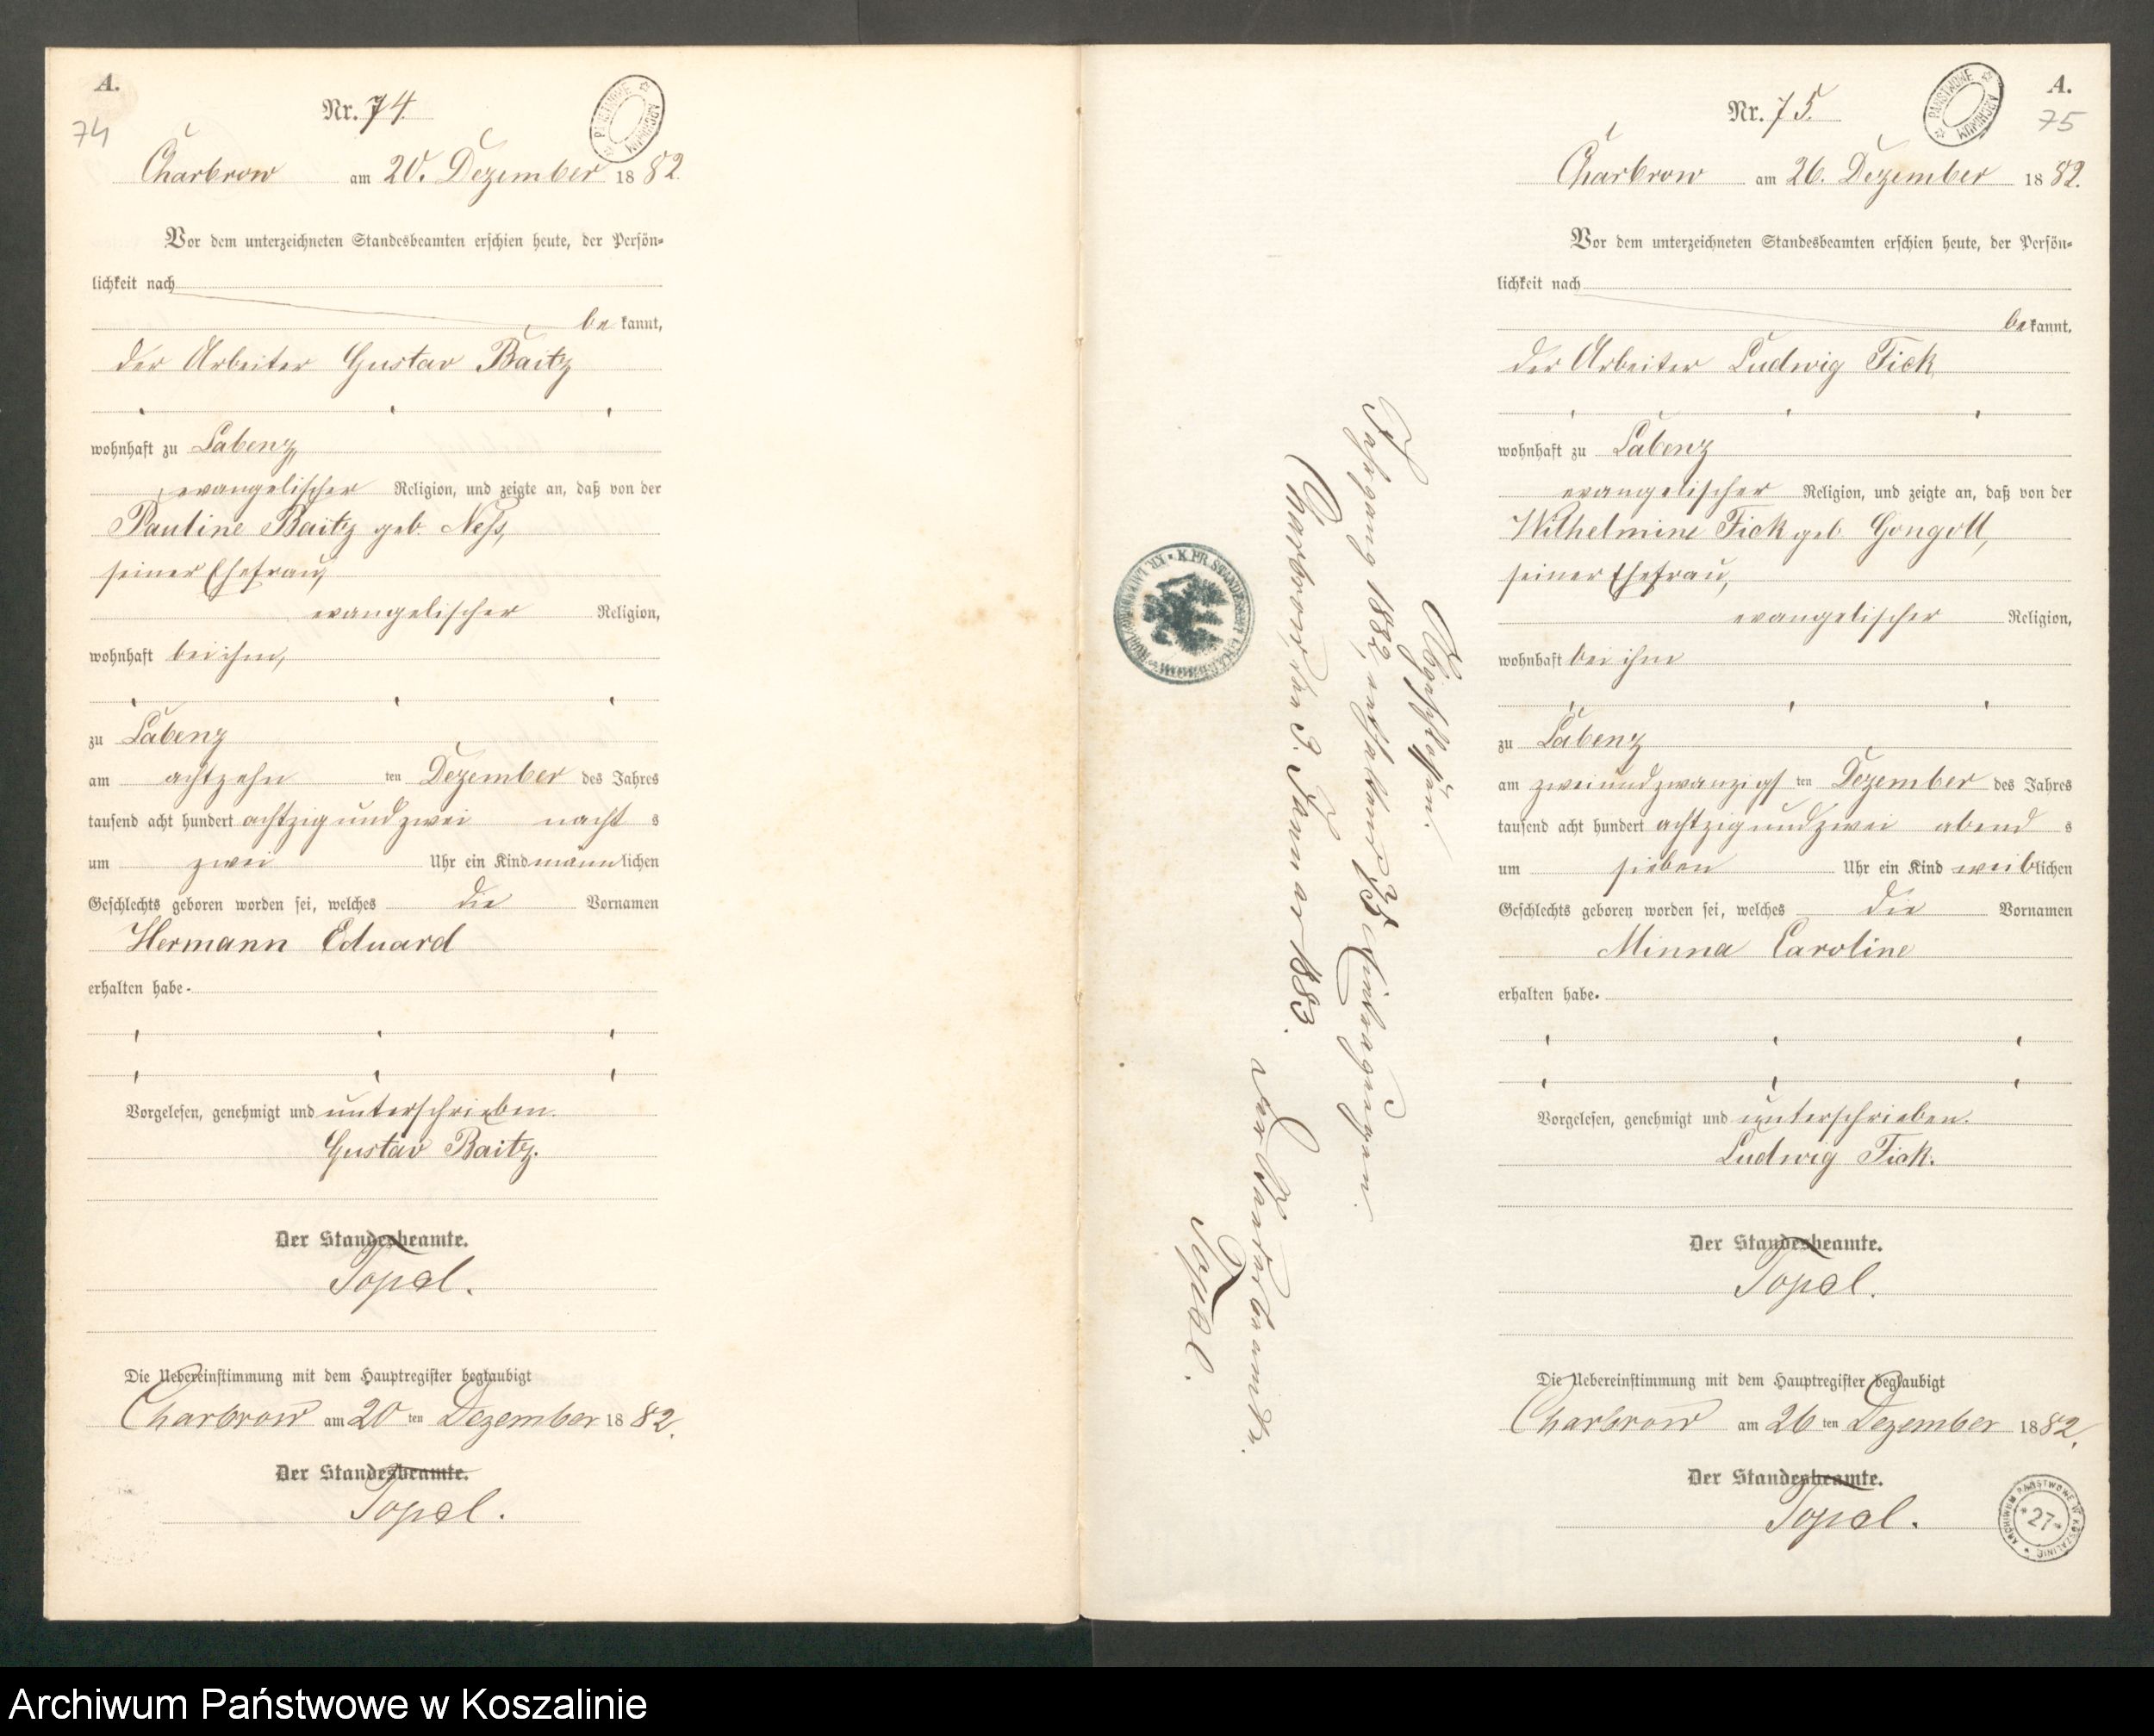 A.
74
Nr. 74.
PAŃSTWOWE ARCHIWUM
Charbrow am 20. Dezember 1882.
Vor dem unterzeichneten Standesbeamten erschien heute, der Persön-
lichkeit nach
bekannt,
der Arbeiter Gustav Baitz
wohnhaft zu Labenz,
evangelischer Religion, und zeigte an, daß von der
Pauline Baitz geb. Neß,
seiner Ehefrau,
evangelischer Religion,
wohnhaft bei ihm,
zu Labenz
am achtzehn ten Dezember des Jahres
tausend acht hundert achtzig und zwei nachts
um zwei Uhr ein Kind männlichen
Geschlechts geboren worden sei, welches die Vornamen
Hermann Eduard
erhalten habe.
Vorgelesen, genehmigt und unterschrieben.
Gustav Baitz.
Der Standesbeamte.
Topel.
Die Uebereinstimmung mit dem Hauptregister beglaubigt
Charbrow am 20 ten Dezember 1882.
Der Standesbeamte.
Topel.
Abgeschlossen.
Jahrgang 1882, enthaltend 75 Eintragungen.
Charbrow, den 3. Januar 1883.
Der Standesbeamte.
Topel.
K. PR. STANDESAMT CHARBROW
A.
75
Nr. 75.
PAŃSTWOWE ARCHIWUM
Charbrow am 26. Dezember 1882.
Vor dem unterzeichneten Standesbeamten erschien heute, der Persön-
lichkeit nach
bekannt,
der Arbeiter Ludwig Fick,
wohnhaft zu Labenz
evangelischer Religion, und zeigte an, daß von der
Wilhelmine Fick geb. Gongoll,
seiner Ehefrau,
evangelischer Religion,
wohnhaft bei ihm
zu Labenz
am zweiundzwanzigsten Dezember des Jahres
tausend acht hundert achtzig und zwei abends
um sieben Uhr ein Kind weiblichen
Geschlechts geboren worden sei, welches die Vornamen
Minna Caroline
erhalten habe.
Vorgelesen, genehmigt und unterschrieben.
Ludwig Fick.
Der Standesbeamte.
Topel.
Die Uebereinstimmung mit dem Hauptregister beglaubigt
Charbrow am 26 ten Dezember 1882.
Der Standesbeamte.
Topel.
ARCHIWUM PAŃSTWOWE W KOSZALINIE
27
Archiwum Państwowe w Koszalinie